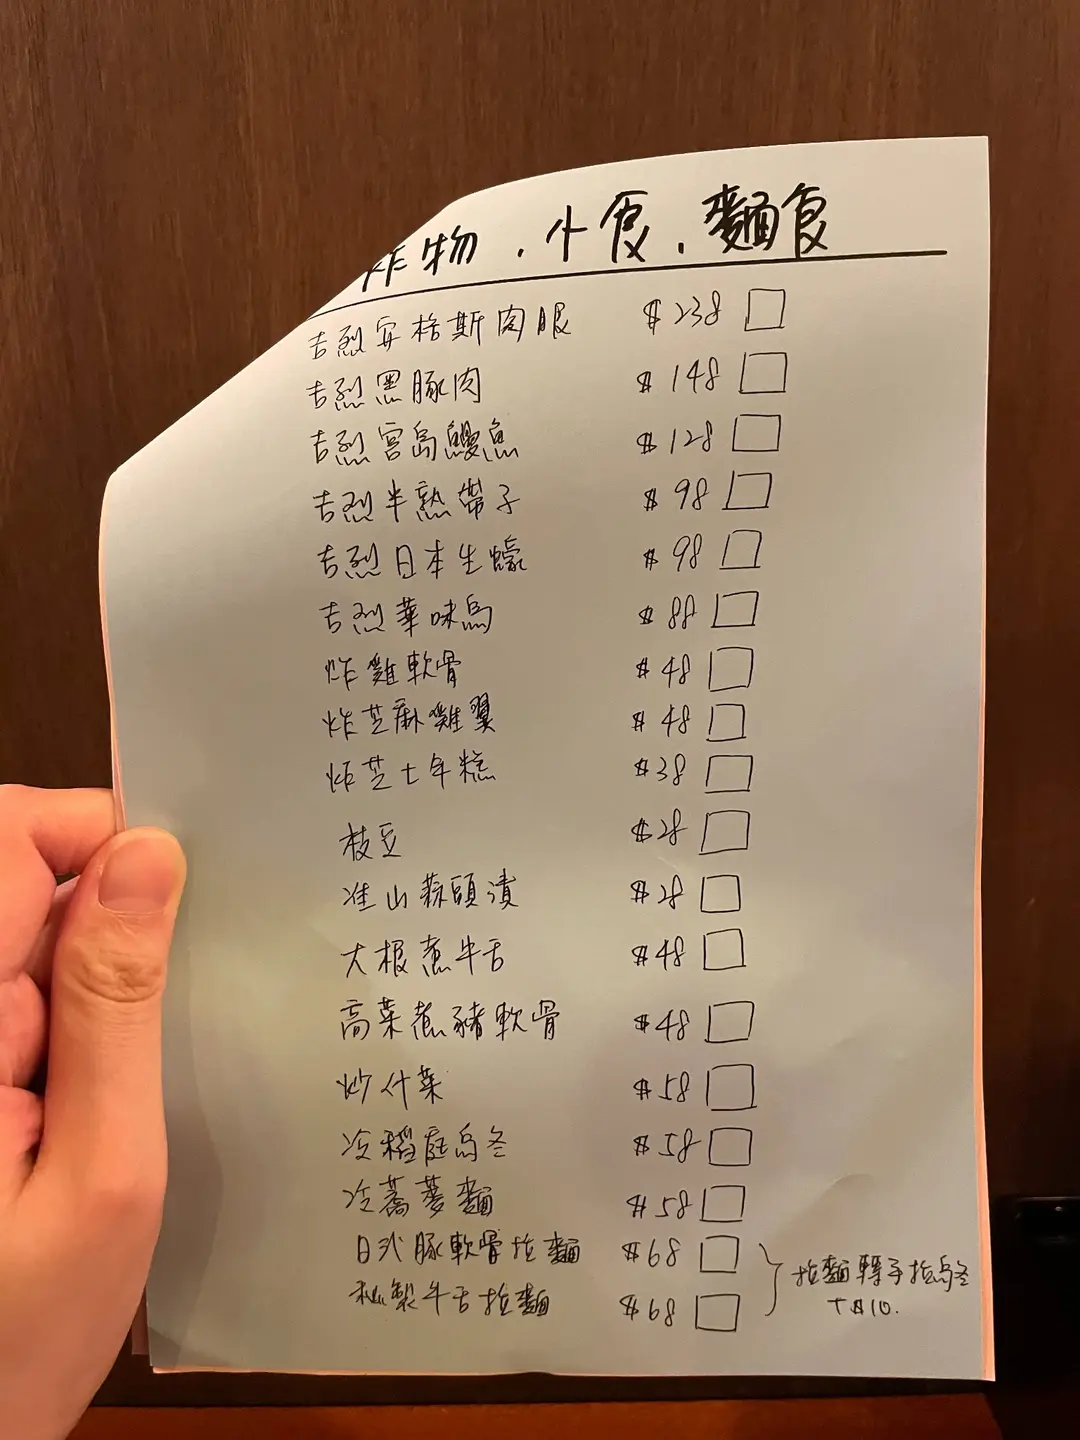 炸物．小食．麵食
吉烈安格斯肉眼 $238
吉烈黑豚肉 $148
吉烈宮島鰻魚 $128
吉烈半熟帶子 $98
吉烈日本生蠔 $98
吉烈華味鳥 $88
炸雞軟骨 $48
炸芝麻雞翼 $48
炸芝士年糕 $38
枝豆 $28
淮山蒜頭漬 $28
大根煮牛舌 $48
高菜煮豬軟骨 $48
炒什菜 $58
冷稻庭烏冬 $58
冷蕎麥麵 $58
日式豚軟骨拉麵 $68
秘製牛舌拉麵 $68
拉麵轉手拉烏冬
+$10.